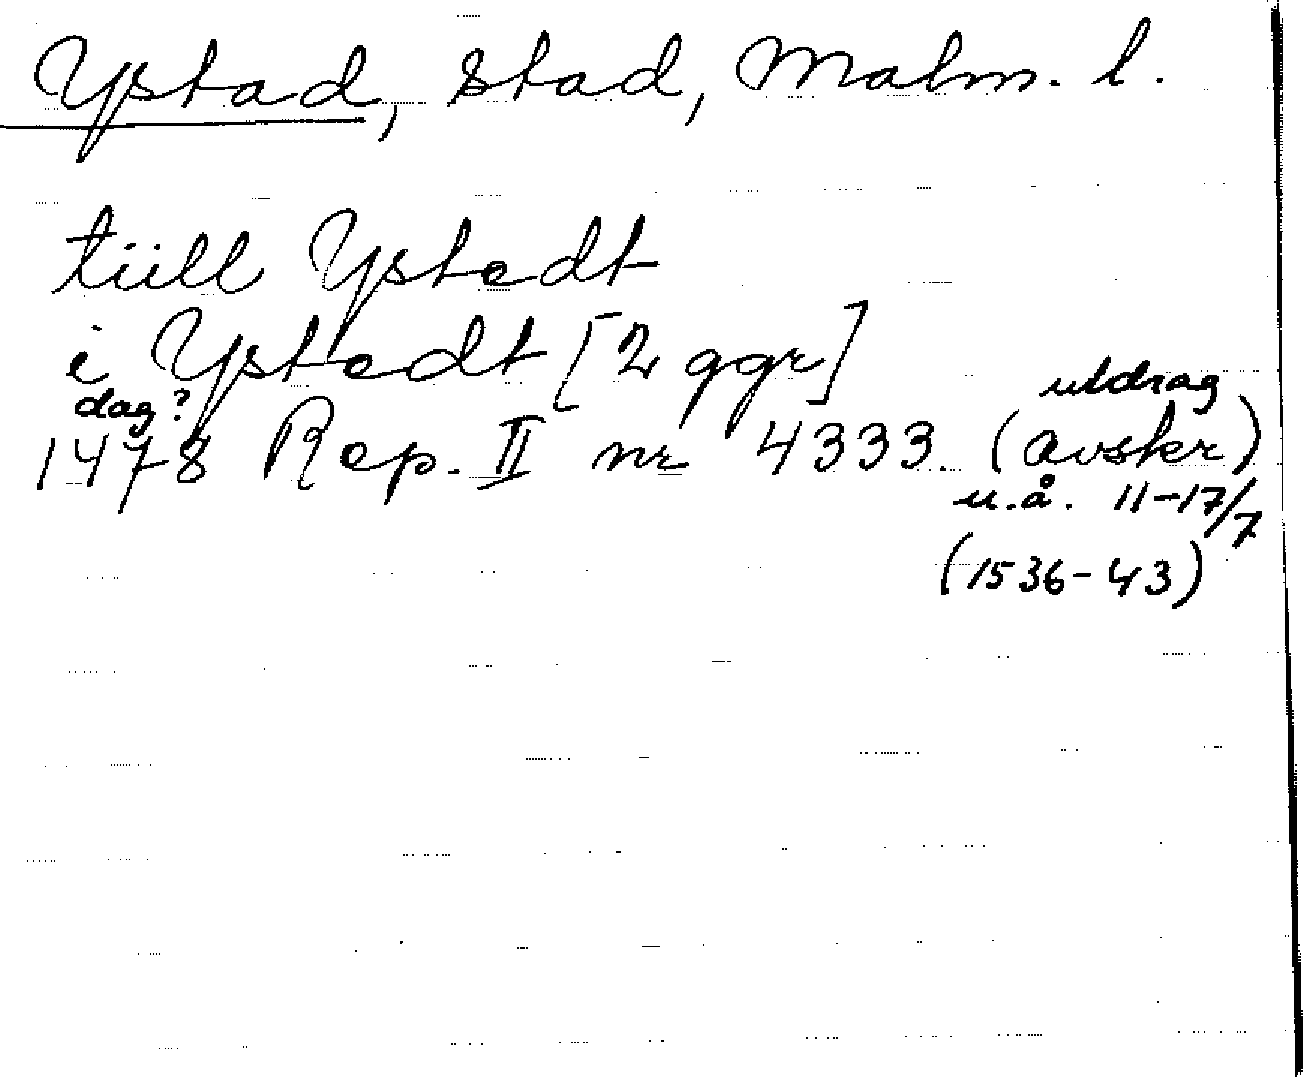 Ystad, stad, Malm. l.
tiill Ystedt
i Ystedt [2 ggr]
dag? utdrag
1478 Rep. II nr 4333. (avskr)
u.å. 11-17/7
(1536-43)